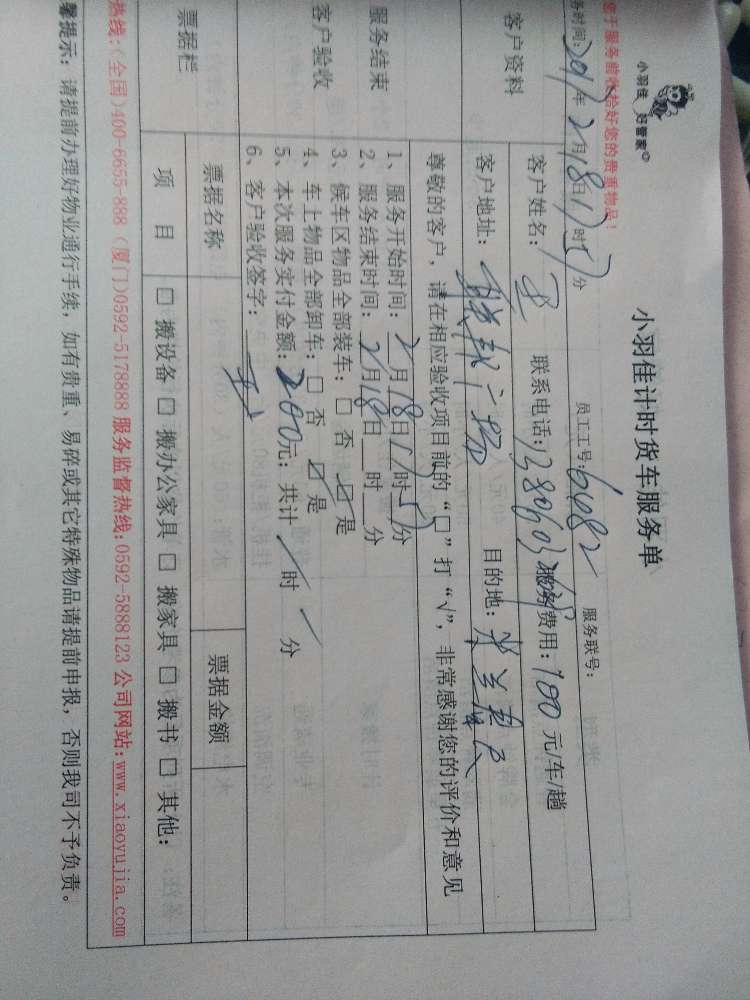 小羽佳 好管家
小羽佳计时货车服务单
您于服务前收拾好您的贵重物品！
务时间：2017年2月18日17时57分 员工工号：6082 服务联号：
客户资料 客户姓名：王 联系电话： 服务费用：100元/车/趟
客户地址： 广场 目的地：
尊敬的客户，请在相应验收项目前的“□”打“√”，非常感谢您的评价和意见
服务结束
客户验收
1、服务开始时间：2月18日17时57分
2、服务结束时间：2月18日 时 分
3、候车区物品全部装车：□ 否 ☑ 是
4、车上物品全部卸车：□ 否 ☑ 是
5、本次服务实付金额：200元；共计 / 时 / 分
6、客户验收签字：王
票据栏 票据名称 票据金额
项 目 □ 搬设备 □ 搬办公家具 □ 搬家具 □ 搬书 □ 其他：
热线：(全国)400-6655-888 (厦门)0592-5178888 服务监督热线：0592-5888123 公司网站：www.xiaoyujia.com
馨提示：请提前办理好物业通行手续，如有贵重、易碎或其它特殊物品请提前申报，否则我司不予负责。